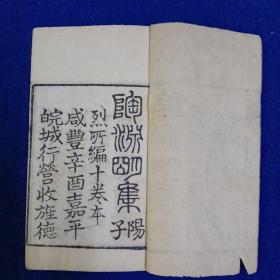 陶淵明集陽子
烈所編十卷本
咸豐辛酉嘉平
皖城行營收旌德